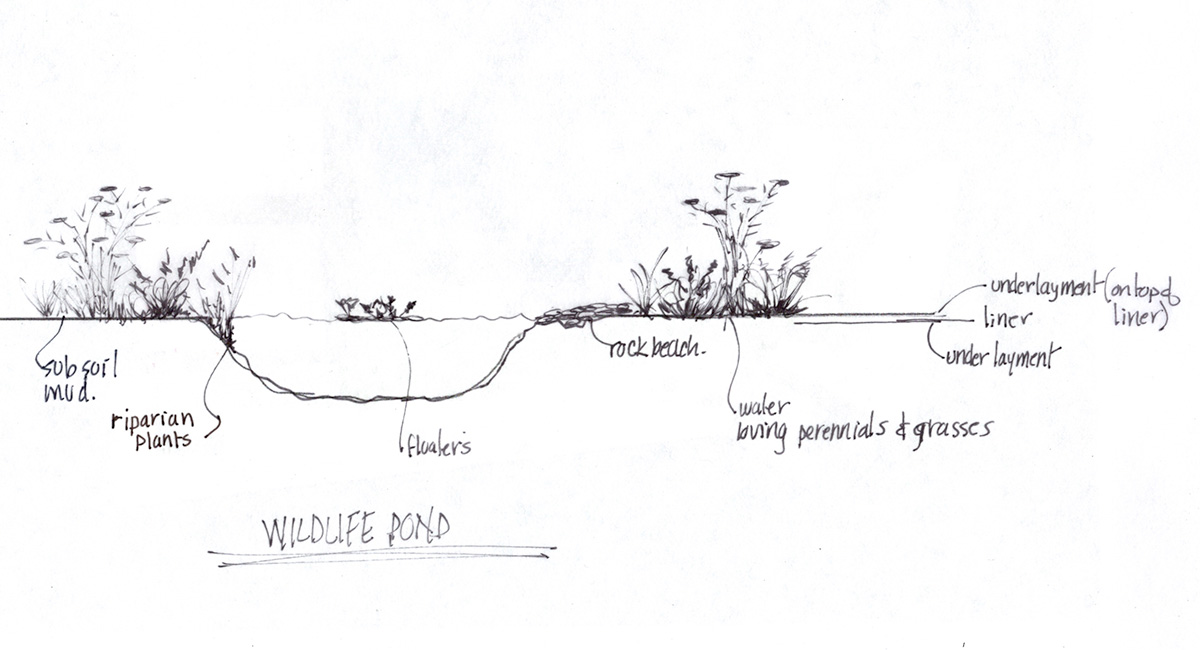 underlayment (on top of
liner)
liner
underlayment
rock beach.
subsoil
mud.
riparian
plants
floaters
water
loving perennials & grasses
WILDLIFE POND